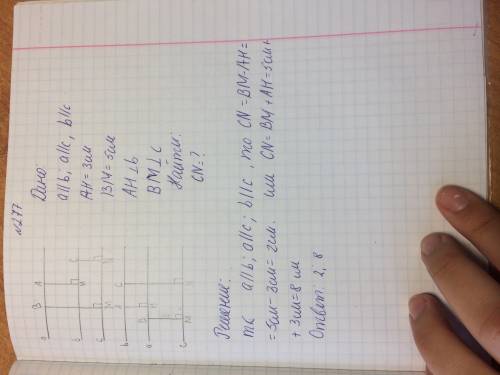 №277
Дано:
a∥b; a∥c, b∥c
AH = 3см
BM = 5см
AH ⊥ b
BM ⊥ c
Найти:
CN = ?
a
B
A
b
H
C
c
M
N
b
A
C
a
B
H
c
M
N
Решение:
т.к a∥b; a∥c; b∥c, то CN = BM - AH =
= 5см - 3см = 2см. или CN = BM + AH = 5см +
+ 3см = 8 см
Ответ: 2; 8